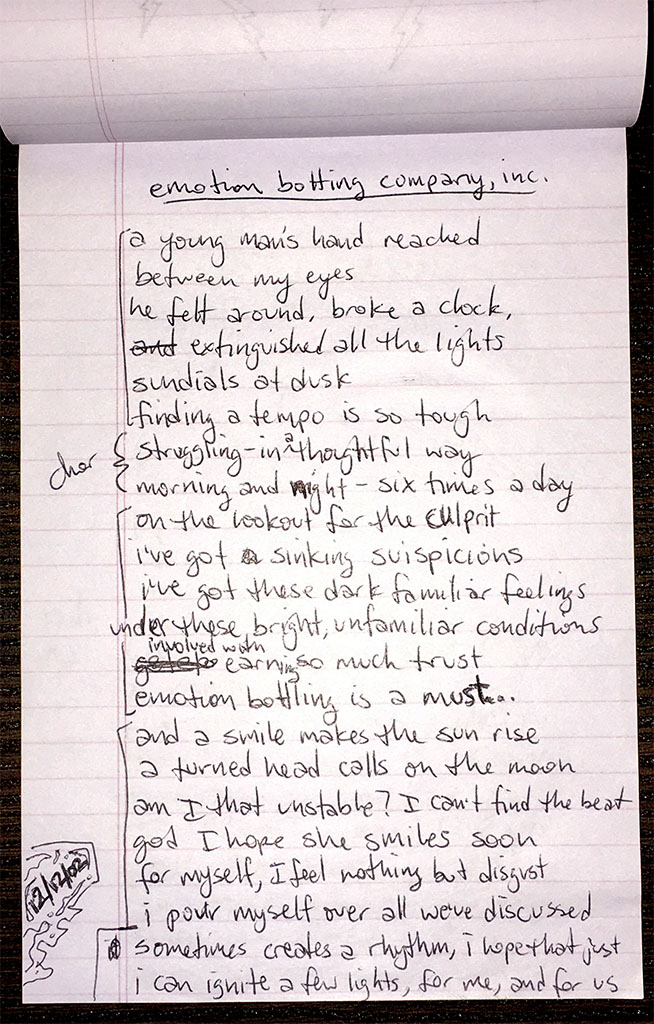 emotion botting company, inc.
a young man's hand reached
between my eyes
he felt around, broke a clock,
and extinguished all the lights
sundials at dusk
finding a tempo is so tough
chor
struggling-in a thoughtful way
morning and night - six times a day
on the lookout for the culprit
i've got a sinking suispicions
i've got these dark familiar feelings
under these bright, unfamiliar conditions
involved with
earning so much trust
emotion bottling is a must...
and a smile makes the sun rise
a turned head calls on the moon
am I that unstable? I can't find the beat
god I hope she smiles soon
for myself, I feel nothing but disgust
i pour myself over all we've discussed
12/12/02
sometimes creates a rhythm, i hope that just
i can ignite a few lights, for me, and for us